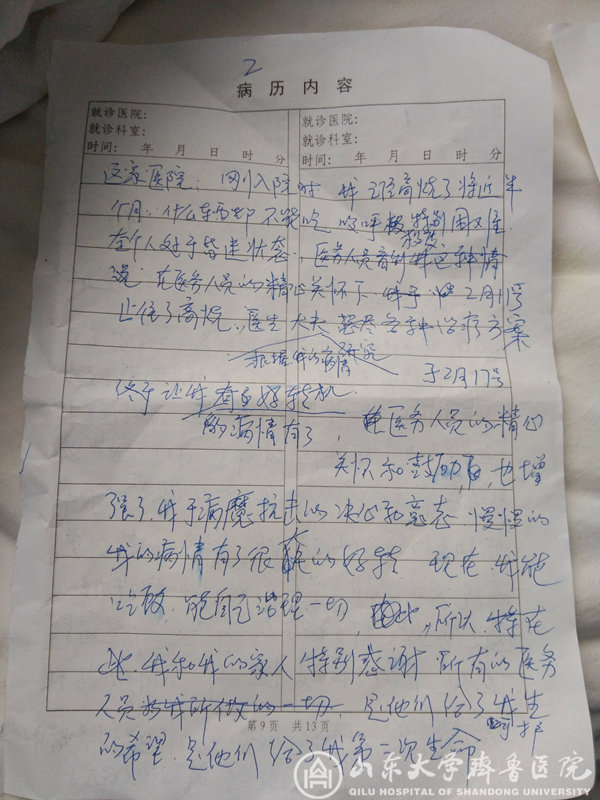 2
病 历 内 容
就诊医院:
就诊科室:
时间: 年 月 日 时 分
就诊医院:
就诊科室:
时间: 年 月 日 时 分
这家医院. 刚入院时 我已经高烧了将近半
个月. 什么东西都不能吃 呼 特别困难
在个人处于昏迷状态. 医务人员 我这种情
况. 在医务人员的精心关怀下 终于 2月11号
止住了高烧. 医生 大夫 各种治疗方案
根据我的病情研究
于2月17号
终于让我有了好转机
的病情有了
医务人员的精心
关怀和鼓励 也增
强了我于病魔抗击的决心和意志 慢慢的
我的病情有了很大的好转 现在 我能
吃饭. 能自己治理一切, 所以. 特在
此. 我和我的家人 特别感谢 所有的医务
人员为我所做的一切. 是他们给了我生
的希望. 是他们给了我第二次生命
第9页 共13页
山东大学齊鲁医院
QILU HOSPITAL OF SHANDONG UNIVERSITY